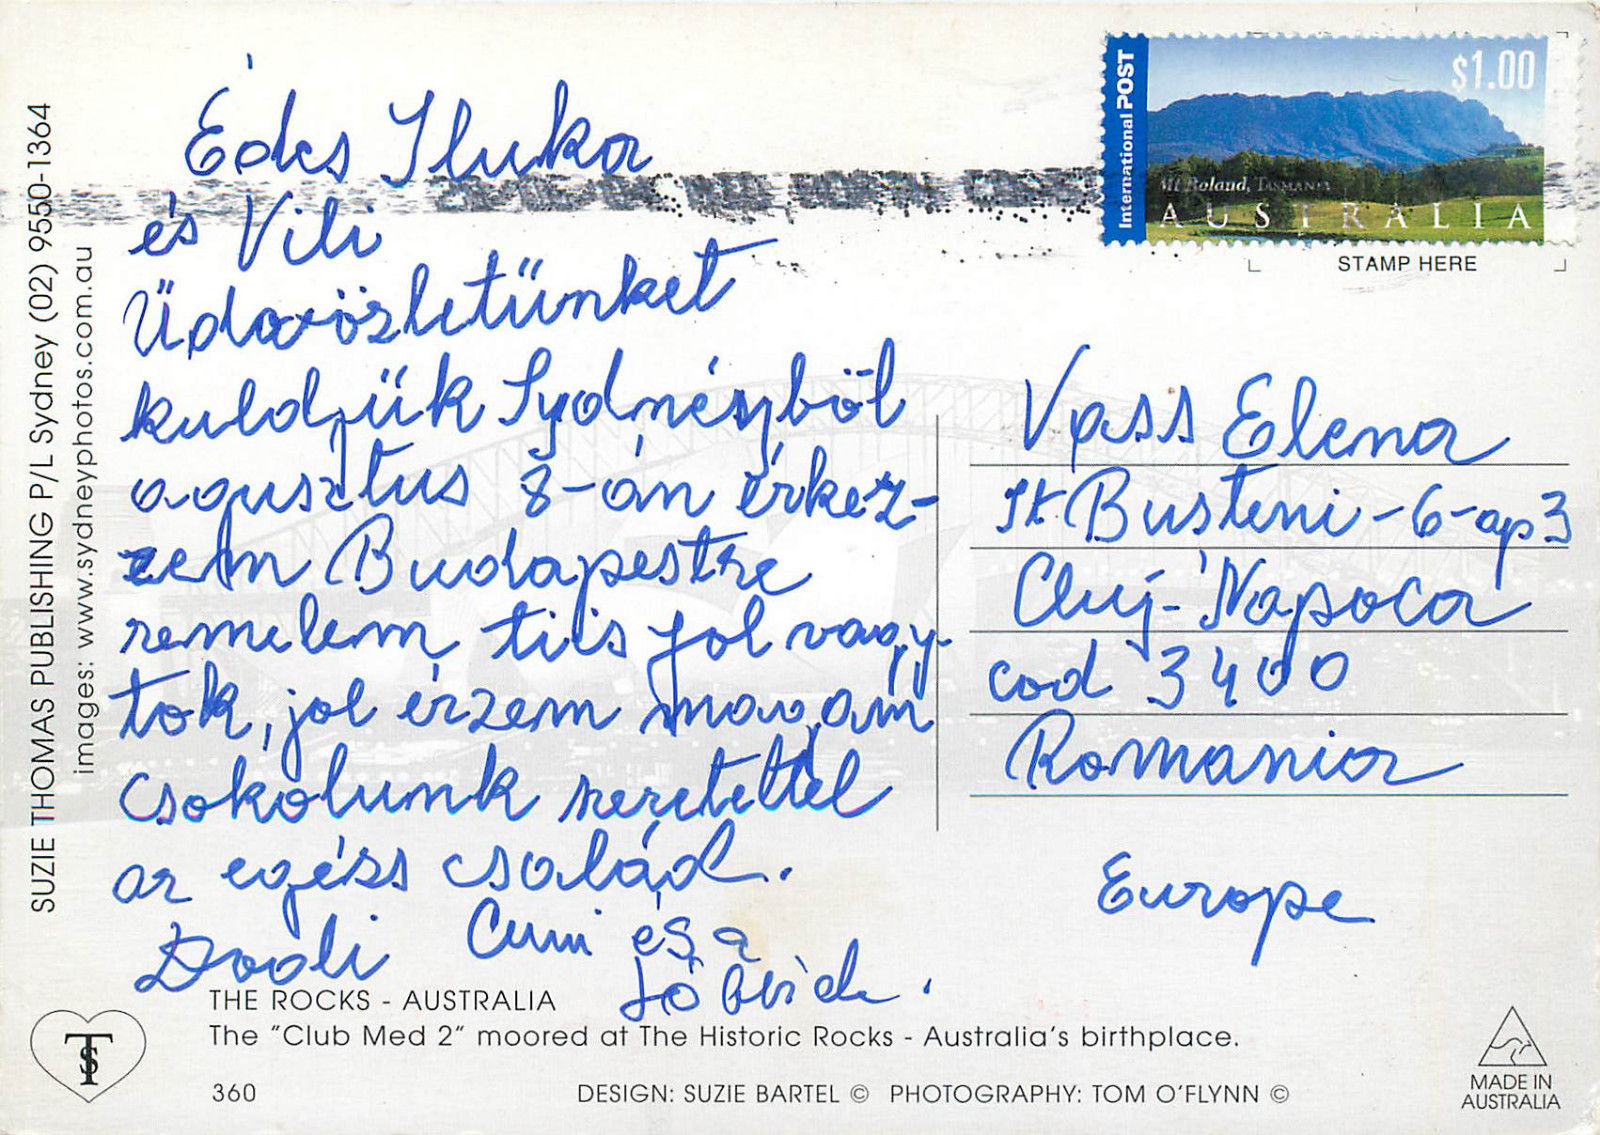 Édes Iluka
és Vili
Üdvözletünket
kuldjük Sydnéyből
agusztus 8-án érkez-
zem Budapestre
remelem tiis jol vagy-
tok, jol érzem magam
Csokolunk szeretettel
az egéss család.
Dodi Cuni és a
többiek.
Vass Elena
St Busteni-6-ap 3
Cluj-Napoca
cod 3400
Romania
Europe
International POST
$1.00
Mt Roland, TASMANIA
AUSTRALIA
STAMP HERE
SUZIE THOMAS PUBLISHING P/L Sydney (02) 9550-1364
images: www.sydneyphotos.com.au
THE ROCKS - AUSTRALIA
The "Club Med 2" moored at The Historic Rocks - Australia's birthplace.
TS
360
DESIGN: SUZIE BARTEL © PHOTOGRAPHY: TOM O'FLYNN ©
MADE IN
AUSTRALIA